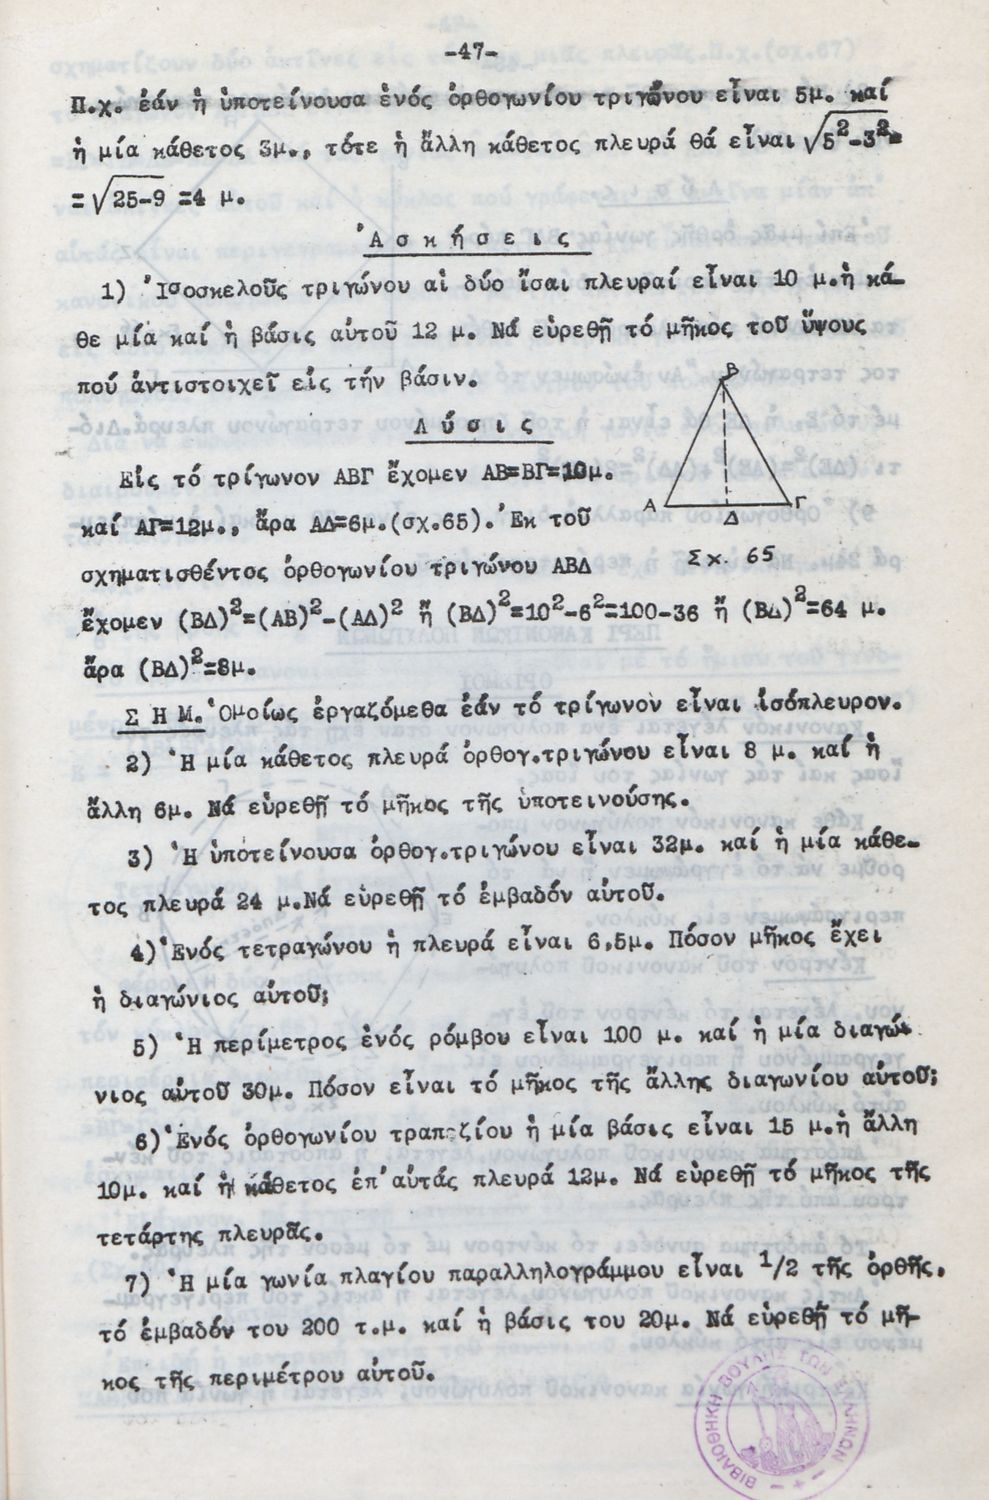 -47-
Π.χ. ἐάν ἡ ὑποτείνουσα ἑνός ὀρθογωνίου τριγώνου εἶναι 5μ. καί
ἡ μία κάθετος 3μ., τότε ἡ ἄλλη κάθετος πλευρά θά εἶναι √5²-3²=
=√25-9 =4 μ.
Ἀσκήσεις
1) Ἰσοσκελοῦς τριγώνου αἱ δύο ἴσαι πλευραί εἶναι 10 μ.ἡ κά-
θε μία καί ἡ βάσις αὐτοῦ 12 μ. Νά εὑρεθῇ τό μῆκος τοῦ ὕψους
πού ἀντιστοιχεῖ εἰς τήν βάσιν.
Λύσις
Εἰς τό τρίγωνον ΑΒΓ ἔχομεν ΑΒ=ΒΓ=10μ.
καί ΑΓ=12μ., ἄρα ΑΔ=6μ.(σχ.65). Ἐκ τοῦ
σχηματισθέντος ὀρθογωνίου τριγώνου ΑΒΔ
ἔχομεν (ΒΔ)²=(ΑΒ)²-(ΑΔ)² ἤ (ΒΔ)²=10²-6²=100-36 ἤ (ΒΔ)²=64 μ.
ἄρα (ΒΔ)²=8μ.
Β
Α
Γ
Δ
Σχ. 65
ΣΗΜ. Ὁμοίως ἐργαζόμεθα ἐάν τό τρίγωνον εἶναι ἰσόπλευρον.
2) Ἡ μία κάθετος πλευρά ὀρθογ.τριγώνου εἶναι 8 μ. καί ἡ
ἄλλη 6μ. Νά εὑρεθῇ τό μῆκος τῆς ὑποτεινούσης.
3) Ἡ ὑποτείνουσα ὀρθογ.τριγώνου εἶναι 32μ. καί ἡ μία κάθε-
τος πλευρά 24 μ.Νά εὑρεθῇ τό ἐμβαδόν αὐτοῦ.
4) Ἑνός τετραγώνου ἡ πλευρά εἶναι 6,5μ. Πόσον μῆκος ἔχει
ἡ διαγώνιος αὐτοῦ;
5) Ἡ περίμετρος ἑνός ρόμβου εἶναι 100 μ. καί ἡ μία διαγώ-
νιος αὐτοῦ 30μ. Πόσον εἶναι τό μῆκος τῆς ἄλλης διαγωνίου αὐτοῦ;
6) Ἑνός ὀρθογωνίου τραπεζίου ἡ μία βάσις εἶναι 15 μ.ἡ ἄλλη
10μ. καί ἡ κάθετος ἐπ' αὐτάς πλευρά 12μ. Νά εὑρεθῇ τό μῆκος τῆς
τετάρτης πλευρᾶς.
7) Ἡ μία γωνία πλαγίου παραλληλογράμμου εἶναι 1/2 τῆς ὀρθῆς.
τό ἐμβαδόν του 200 τ.μ. καί ἡ βάσις του 20μ. Νά εὑρεθῇ τό μῆ-
κος τῆς περιμέτρου αὐτοῦ.
ΒΙΒΛΙΟΘΗΚΗ ΒΟΥΛΗΣ ΤΩΝ ΕΛΛΗΝΩΝ